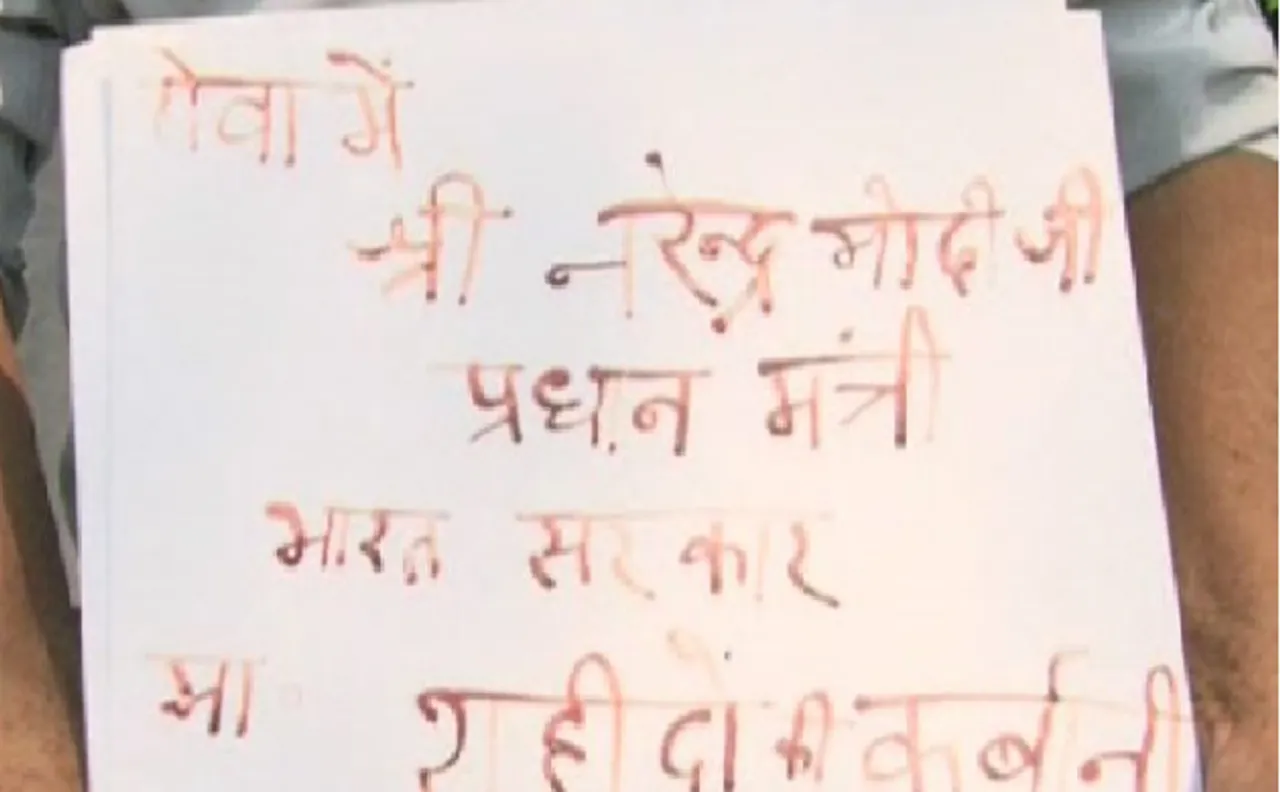 सेवा में
श्री नरेन्द्र मोदी जी
प्रधान मंत्री
भारत सरकार
शहीदों की कर्बानी